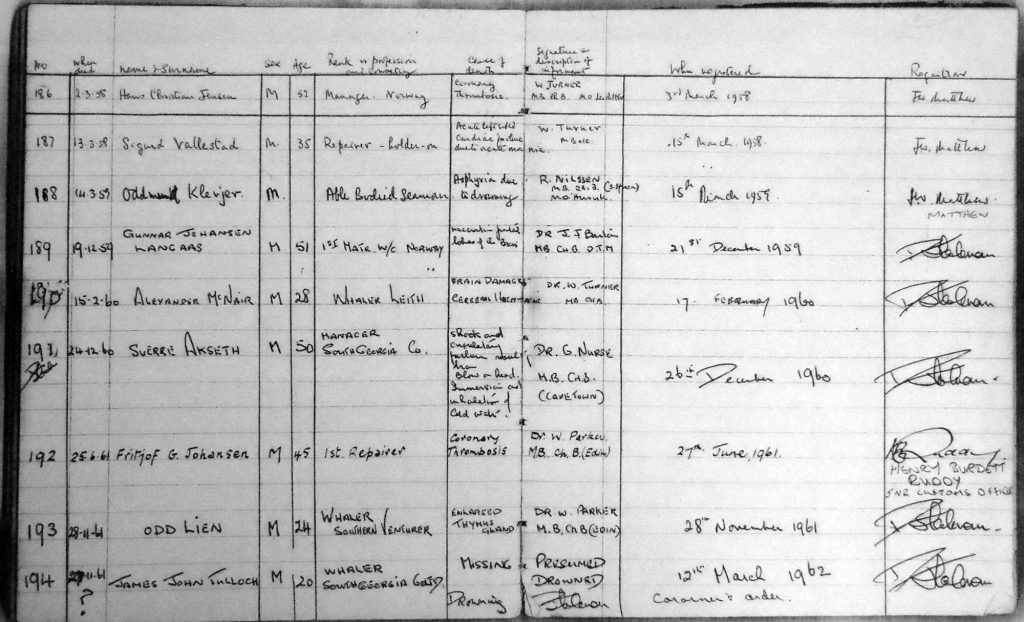 No When died Name & Surname Sex Age Rank or profession and country Cause of death Signature & description of informant When registered Registrar
186 2-3-58 Hans Christian Jensen M 52 Manager. Norway Coronary Thrombosis. W TURNER M.B. Ch.B. M.O. Leith Hbr 3rd March 1958 Fw. Matthew
187 13.3.58 Sigurd Vallestad M. 35 Repairer - holder-on Acute left sided Cardiac failure due to acute W. Turner 15th March 1958. Fw. Matthew
188 14.3.59 Oddmund Kleijer M. Able Bodied Seaman Asphyxia due to drowning R. NILSSEN M.B. CH.B. 15th March 1959. Fw. Matthew.
MATTHEW
189 19-12-59 GUNNAR JOHANSEN LANGAAS M 51 1ST MATE W/C NORWAY DR J. J M.B. Ch.B. D.T.M 21ST December 1959
190 15-2-60 ALEXANDER McNAIR M 28 WHALER LEITH BRAIN DAMAGE CEREBRAL HAEMORRHAGE DR. W. TURNER MB ChB 17. FEBRUARY 1960
191 24-12-60 SVERRE AKSETH M 50 MANAGER SOUTH GEORGIA Co. Shock and circulatory failure result from Blow on head. Immersion and inhalation of Cold water. DR. G. NURSE M.B. Ch.B. (CAPETOWN) 26th December 1960
192 25.6.61 Fritjof G. Johansen M 45 1st. Repairer Coronary Thrombosis Dr. W. Parker M.B. Ch.B. (Edin) 27th June, 1961.
HENRY BURDETT RUDDY
SNR CUSTOMS OFFICER
193 28-11-61 ODD LIEN M 24 WHALER SOUTHERN VENTURER ENLARGED THYMUS GLAND DR. W. PARKER M.B. ChB (EDIN) 28th November 1961
194 27-11-61 ? JAMES JOHN TULLOCH M 20 WHALER SOUTH GEORGIA MISSING PRESUMED DROWNED Drowning 12th March 1962
Coroner's order.